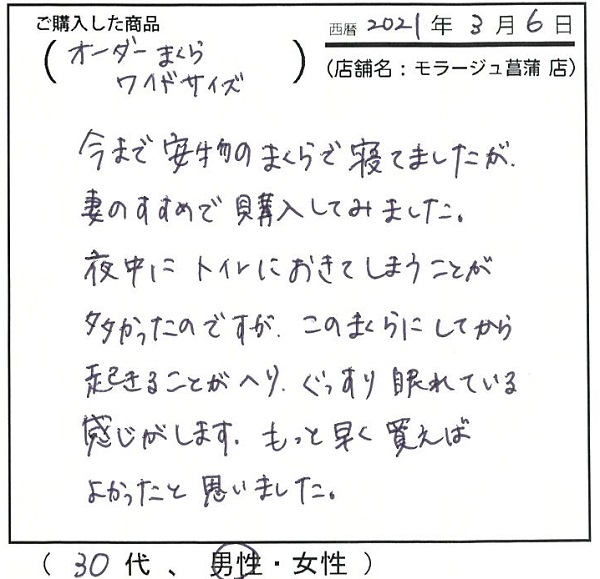 ご購入した商品
西暦 2021 年 3 月 6 日
(オーダーまくら
ワイドサイズ)
(店舗名:モラージュ菖蒲 店)
今まで安物のまくらで寝てましたが、
妻のすすめで購入してみました。
夜中にトイレにおきてしまうことが
多かったのですが、このまくらにしてから
起きることがへり、ぐっすり眠れている
感じがします。もっと早く買えば
よかったと思いました。
(30代、男性・女性)